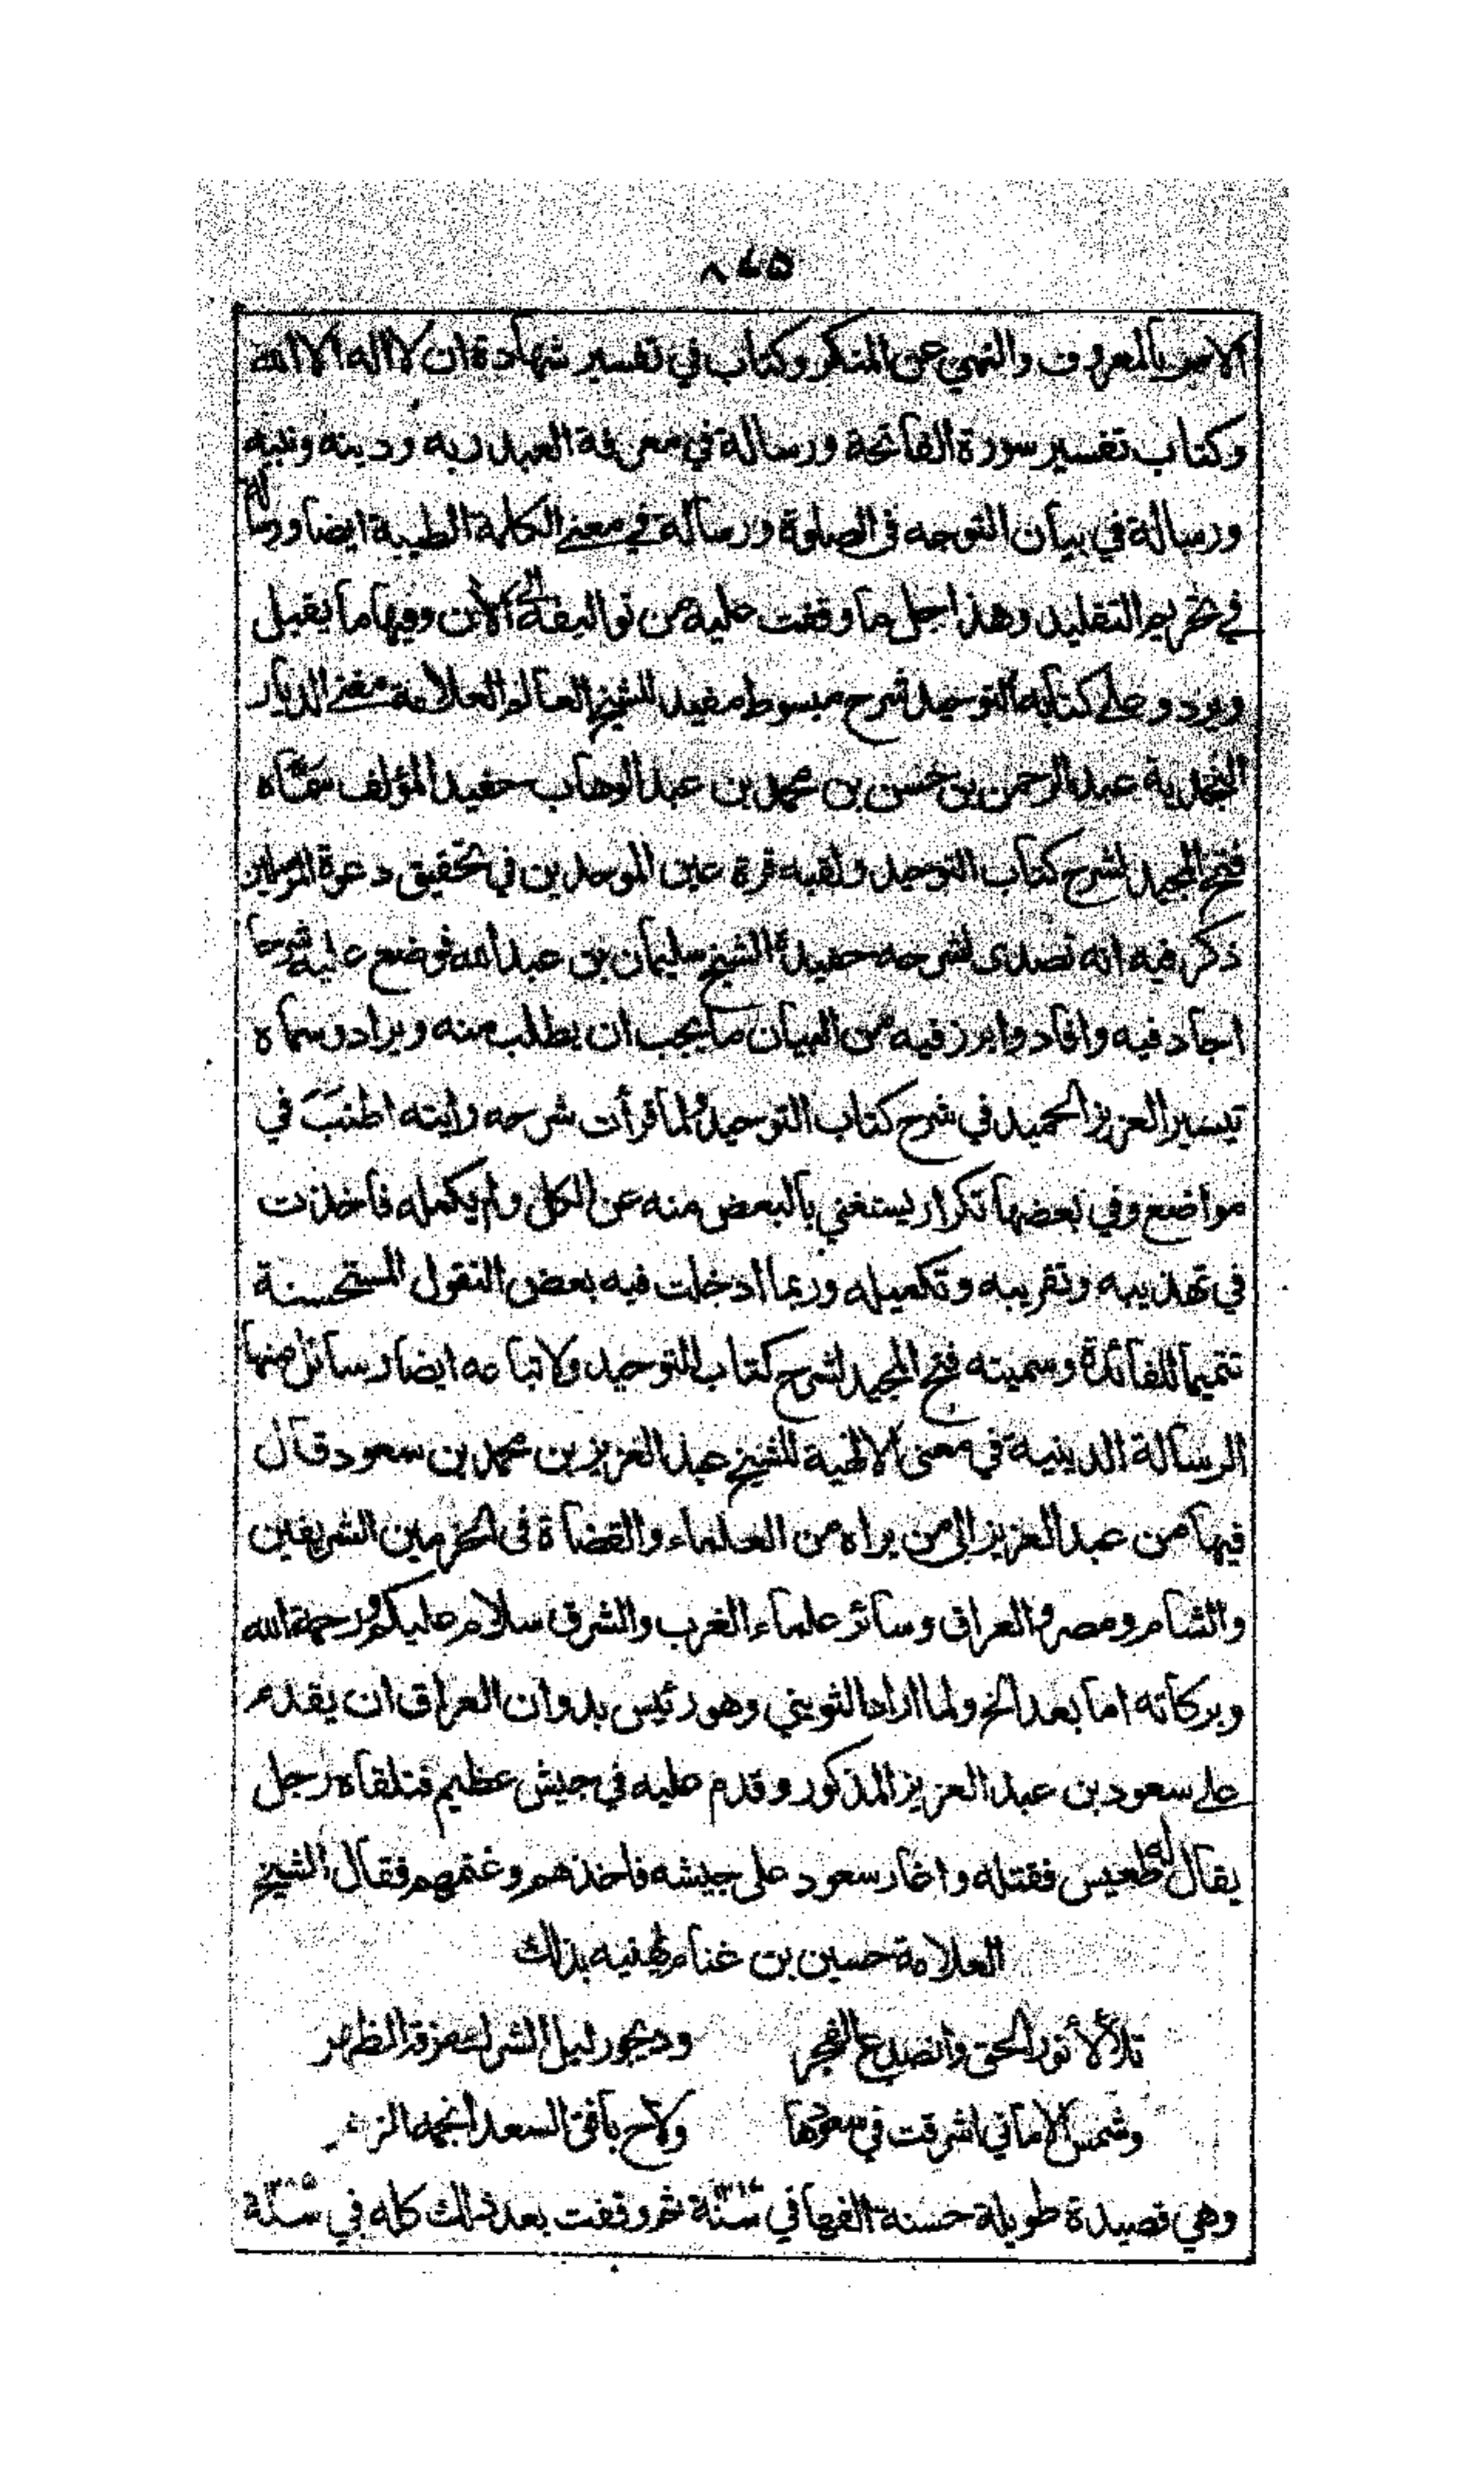 ٨٤٥
الامر بالمعروف والنهي عن المنكر وكتاب في تفسير شهادة ان لا اله الا الله
وكتاب تفسير سورة الفاتحة ورسالة في معرفة العبد ربه ودينه ونبيه
ورسالة في بيان التوجه في الصلوة ورسالة في معنى الكلمة الطيبة ايضا ورسالة
في تحريم التقليد وهذا جل ما وقفت عليه من تواليفه الى الآن وفيها ما يقبل
ويرد وعلى كتابه التوحيد شرح مبسوط مفيد للشيخ العالم العلامة مفتى الديار
النجدية عبد الرحمن بن حسن بن محمد بن عبد الوهاب حفيد المؤلف سَمَّاه
فتح المجيد لشرح كتاب التوحيد ولقبه قرة عين الموحدين في تحقيق دعوة المرسلين
ذكر فيه انه تصدى لشرحه حفيده الشيخ سليمان بن عبد الله فوضع عليه شرحا
اجاد فيه وافاد وابرز فيه من البيان ما يجب ان يطلب منه ويراد وسماه
تيسير العزيز الحميد في شرح كتاب التوحيد ولما قرأت شرحه رايته اطنب في
مواضع وفي بعضها تكرار يستغني بالبعض منه عن الكل ولم يكمله فاخذت
في تهذيبه وتقريبه وتكميله وربما ادخلت فيه بعض النقول المستحسنة
تتميما للفائدة وسميته فتح المجيد لشرح كتاب التوحيد ولاتباعه ايضا رسائل منها
الرسالة الدينية في معنى الالهية للشيخ عبد العزيز بن محمد بن سعود قال
فيها من عبد العزيز الى من يراه من العلماء والقضاة في الحرمين الشريفين
والشام ومصر والعراق وسائر علماء الغرب والشرق سلام عليكم ورحمة الله
وبركاته اما بعد الخ ولما اراد الثويني وهو رئيس بدوان العراق ان يقدم
على سعود بن عبد العزيز المذكور وقدم عليه في جيش عظيم فتلقاه رجل
يقال له طعيس فقتله واغار سعود على جيشه فاخذهم وغنمهم فقال الشيخ
العلامة حسين بن غنام يهنيه بذلك
تلألأ نور الحق وانصدع الفجر ودیجور ليل الشرك مزقه الظهر
وشمس الاماني اشرقت في سعودها ولاح بافق السعد انجمه الزهر
وهي قصيدة طويلة حسنة الفها في سنة ثم وقفت بعد ذلك كله في سنة